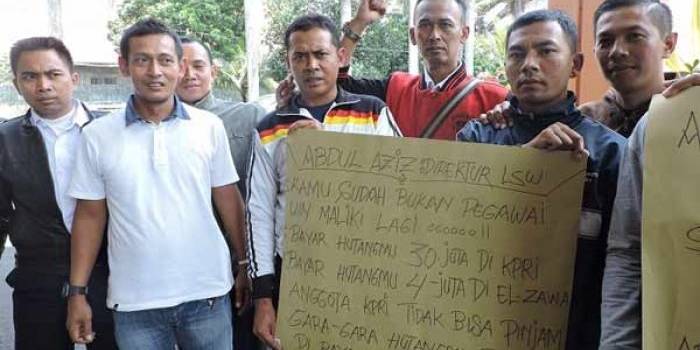 ABDUL AZIZ DIREKTUR LSW
&
KAMU SUDAH BUKAN PEGAWAI
UIN MALIKI LAGI oooooo!!
BAYAR HUTANGMU 30 JUTA DI KPRI
BAYAR HUTANGMU 4-JUTA DI EL-ZAWA
ANGGOTA KPRI TIDAK BISA PINJAM
GARA-GARA